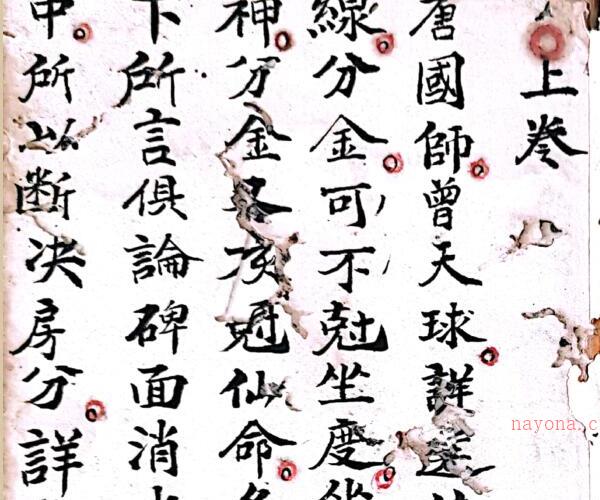 上卷
唐國師曾天球詳選
線分金可不尅坐度
神分金又次尅仙命
下所言俱論碑面消
中所以断决房分詳
nayona.c